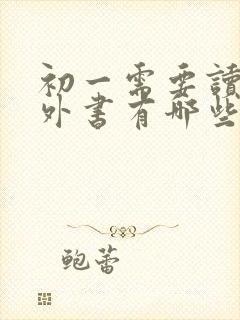 初一需要讀
外書有哪些
鲍蕾